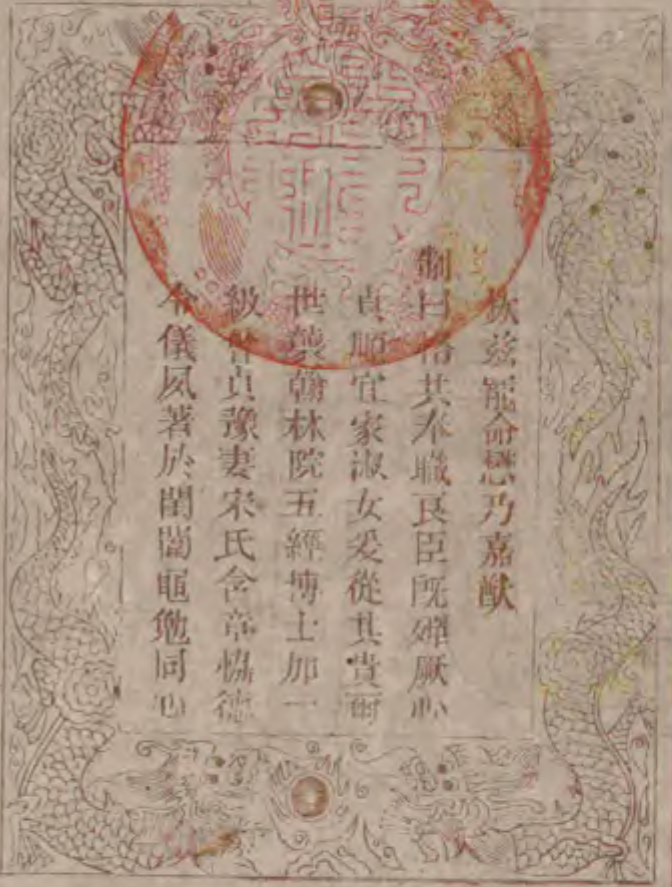 欽茲寵命懋乃嘉猷
制曰恪共奉職良臣既殫厥心
貞順宜家淑女爰從其貴爾
世襲翰林院五經博士加一
級曾貞豫妻宋氏含章協德
令儀夙著於閨闥黽勉同心